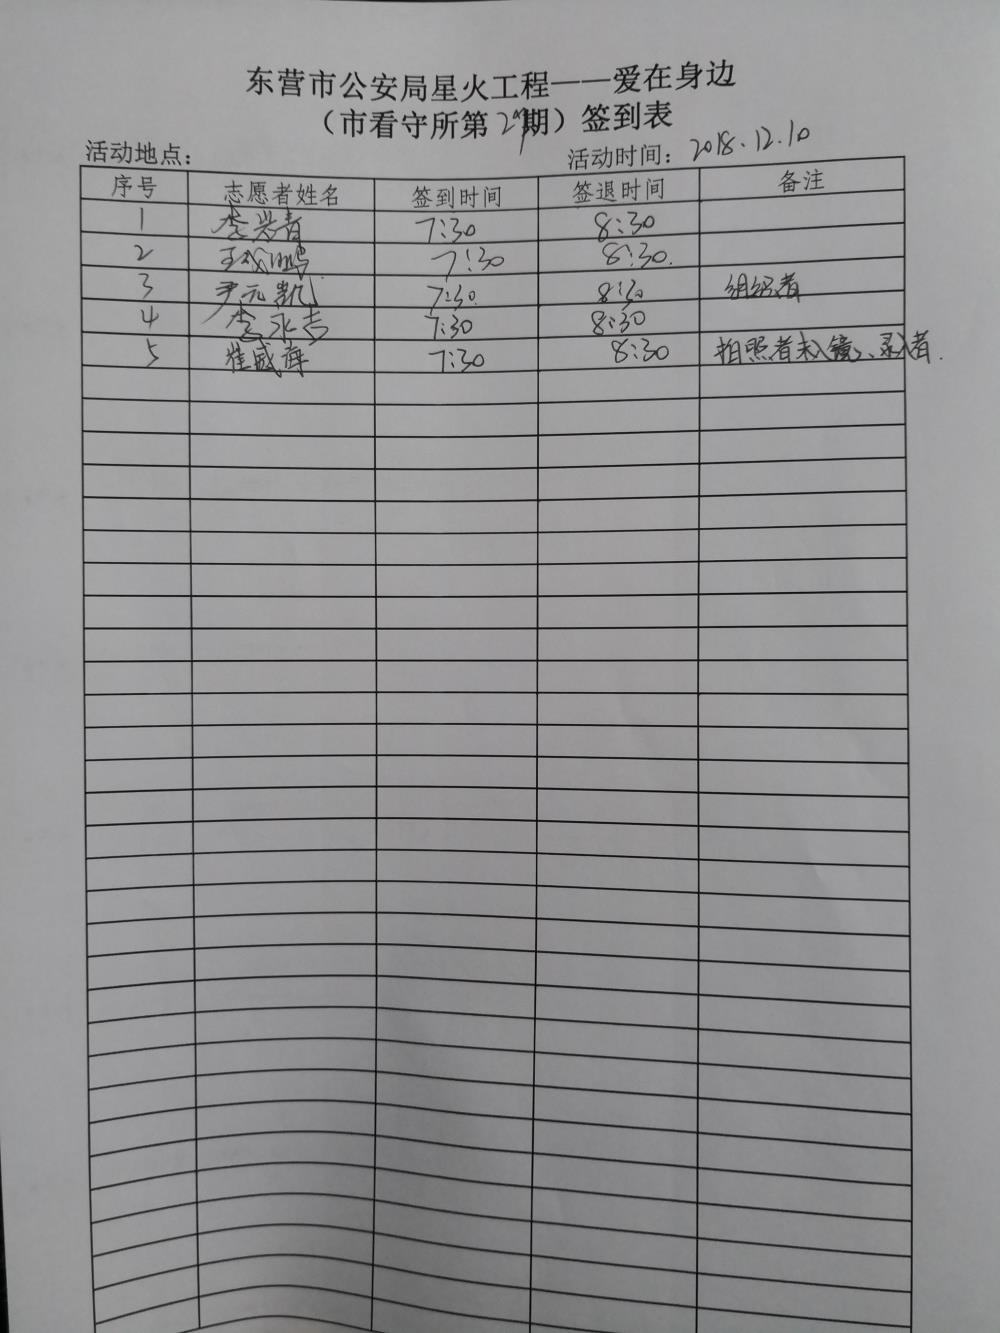 东营市公安局星火工程——爱在身边
（市看守所第29期）签到表
活动地点： 活动时间：2018.12.10
序号 志愿者姓名 签到时间 签退时间 备注
1 李兴春 7:30 8:30
2 王 鹏 7:30 8:30.
3 尹元凯 7:30. 8:30 组织者
4 李永吉 7:30 8:30
5 崔威海 7:30 8:30 拍照者未入镜、录入者.